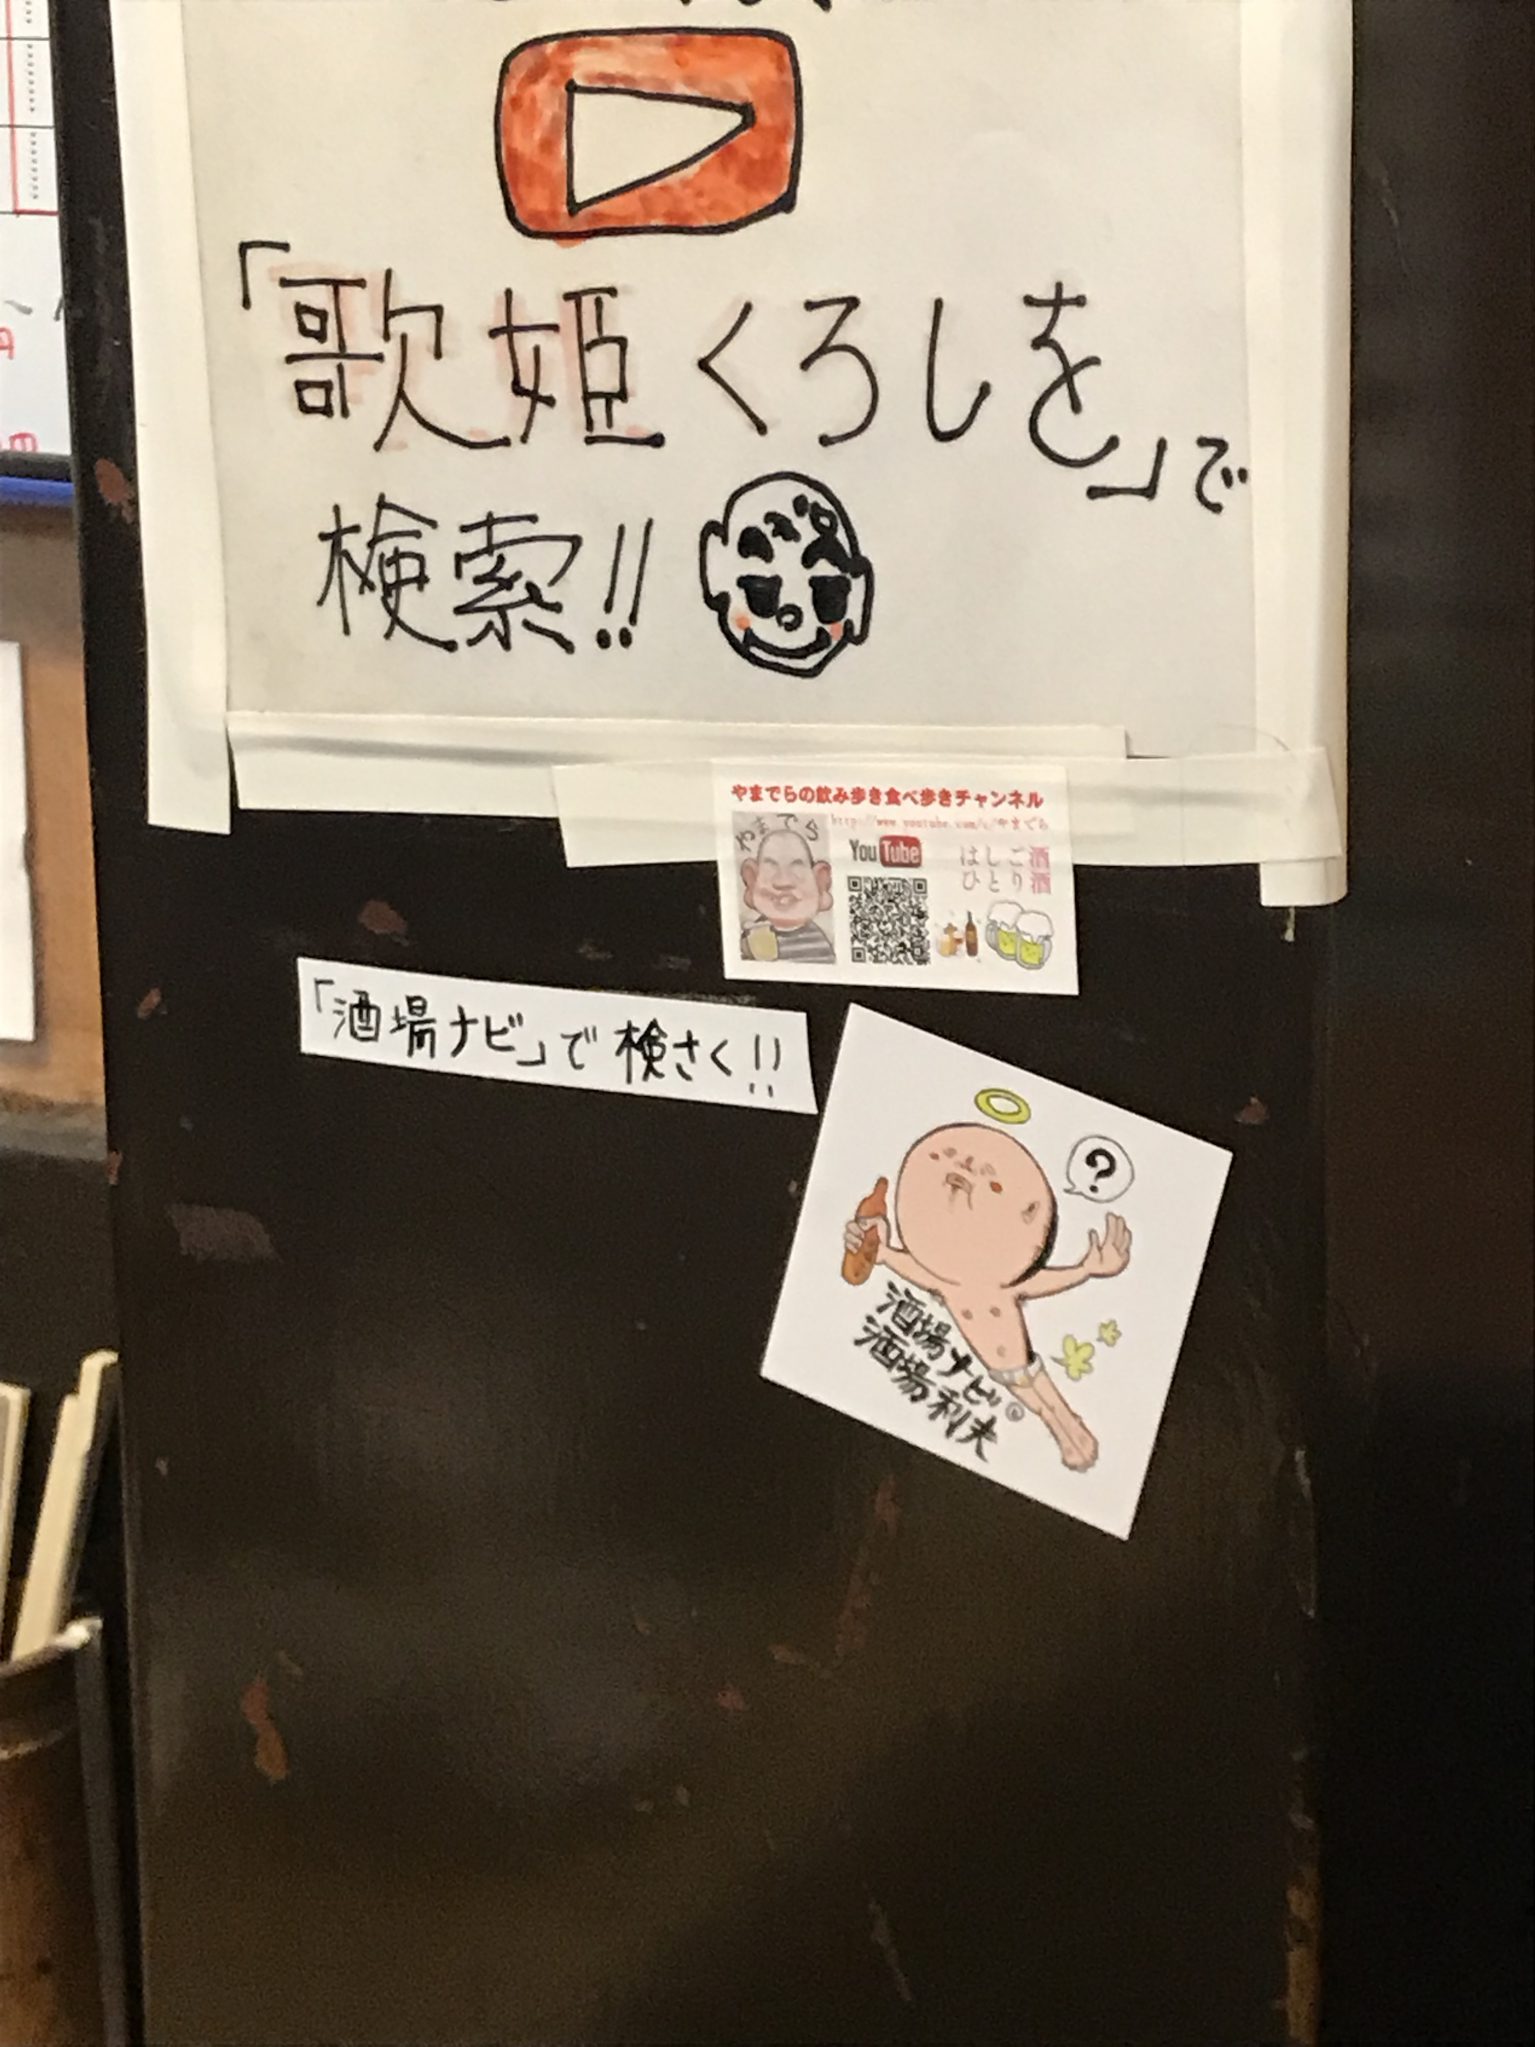 「歌姫くろしを」で
検索!!
やまでらの飲み歩き食べ歩きチャンネル
http://www.youtube.com/c/やまでら
やまでら
YouTube
はしご酒
ひとり酒
「酒場ナビ」で検さく!!
?
酒場ナビ
酒場利夫
円